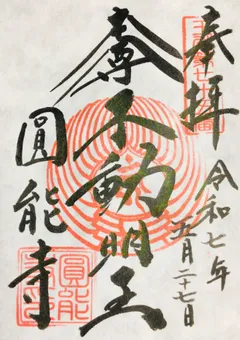 奉拝
令和七年
五月二十七日
大聖不動明王
圓能寺
圓能